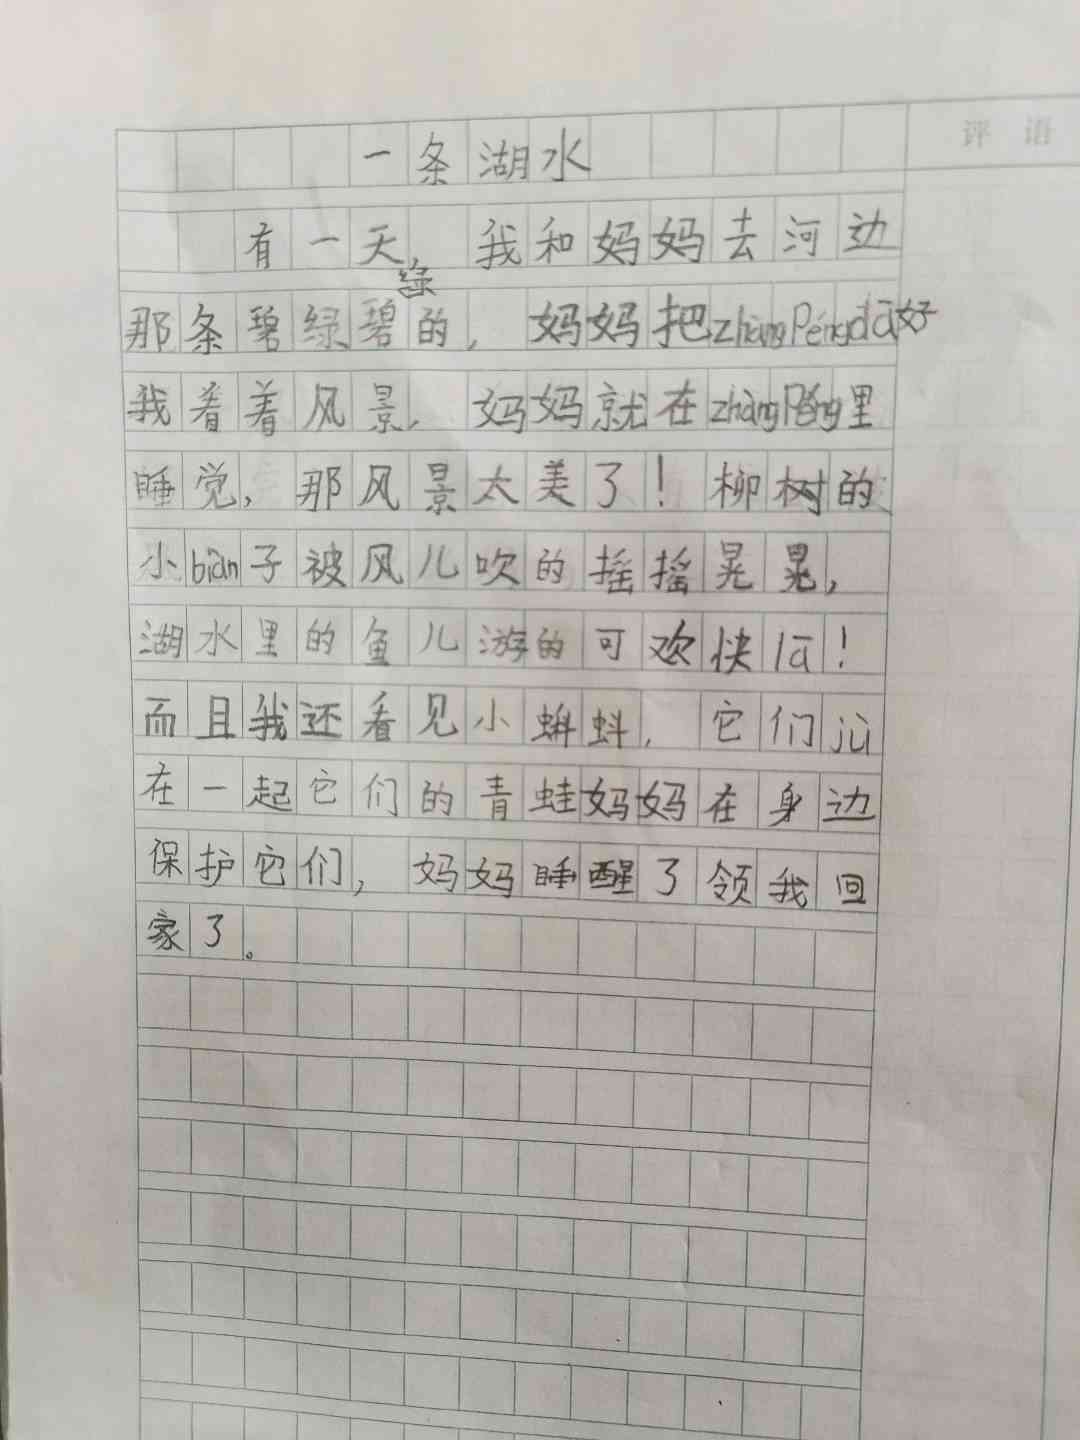 评语
一条湖水
有一天，我和妈妈去河边
那条碧绿碧绿的，妈妈把zhàngPéngdā好
我着着风景，妈妈就在zhàngPéng里
睡觉，那风景太美了！柳树的
小biàn子被风儿吹的摇摇晃晃，
湖水里的鱼儿游的可欢快lā！
而且我还看见小蝌蚪，它们jù
在一起它们的青蛙妈妈在身边
保护它们，妈妈睡醒了领我回
家了。